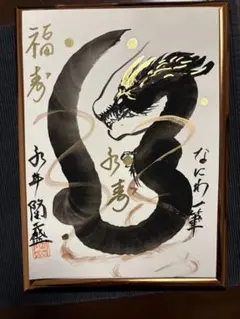 福寿
永寿
なにわ一筆
永井